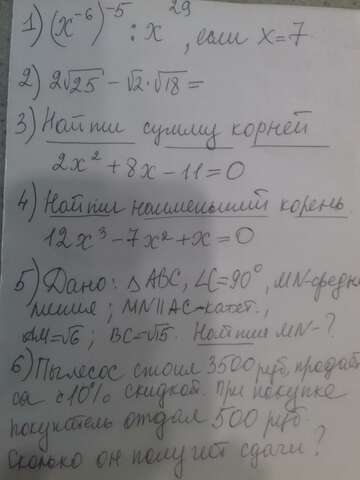 1) (x⁻⁶)⁻⁵ : x²⁹, если x=7
2) 2√25 − √2·√18 =
3) Найти сумму корней
2x² + 8x − 11 = 0
4) Найти наименьший корень
12x³ − 7x² + x = 0
5) Дано: △ABC, ∠C=90°, MN-средн
линия; MN||AC-катет.,
AM=√6; BC=√15. Найти MN-?
6) Пылесос стоил 3500 руб, продаёт
ся с 10% скидкой. При покупке
покупатель отдал 500 руб.
Сколько он получит сдачи?